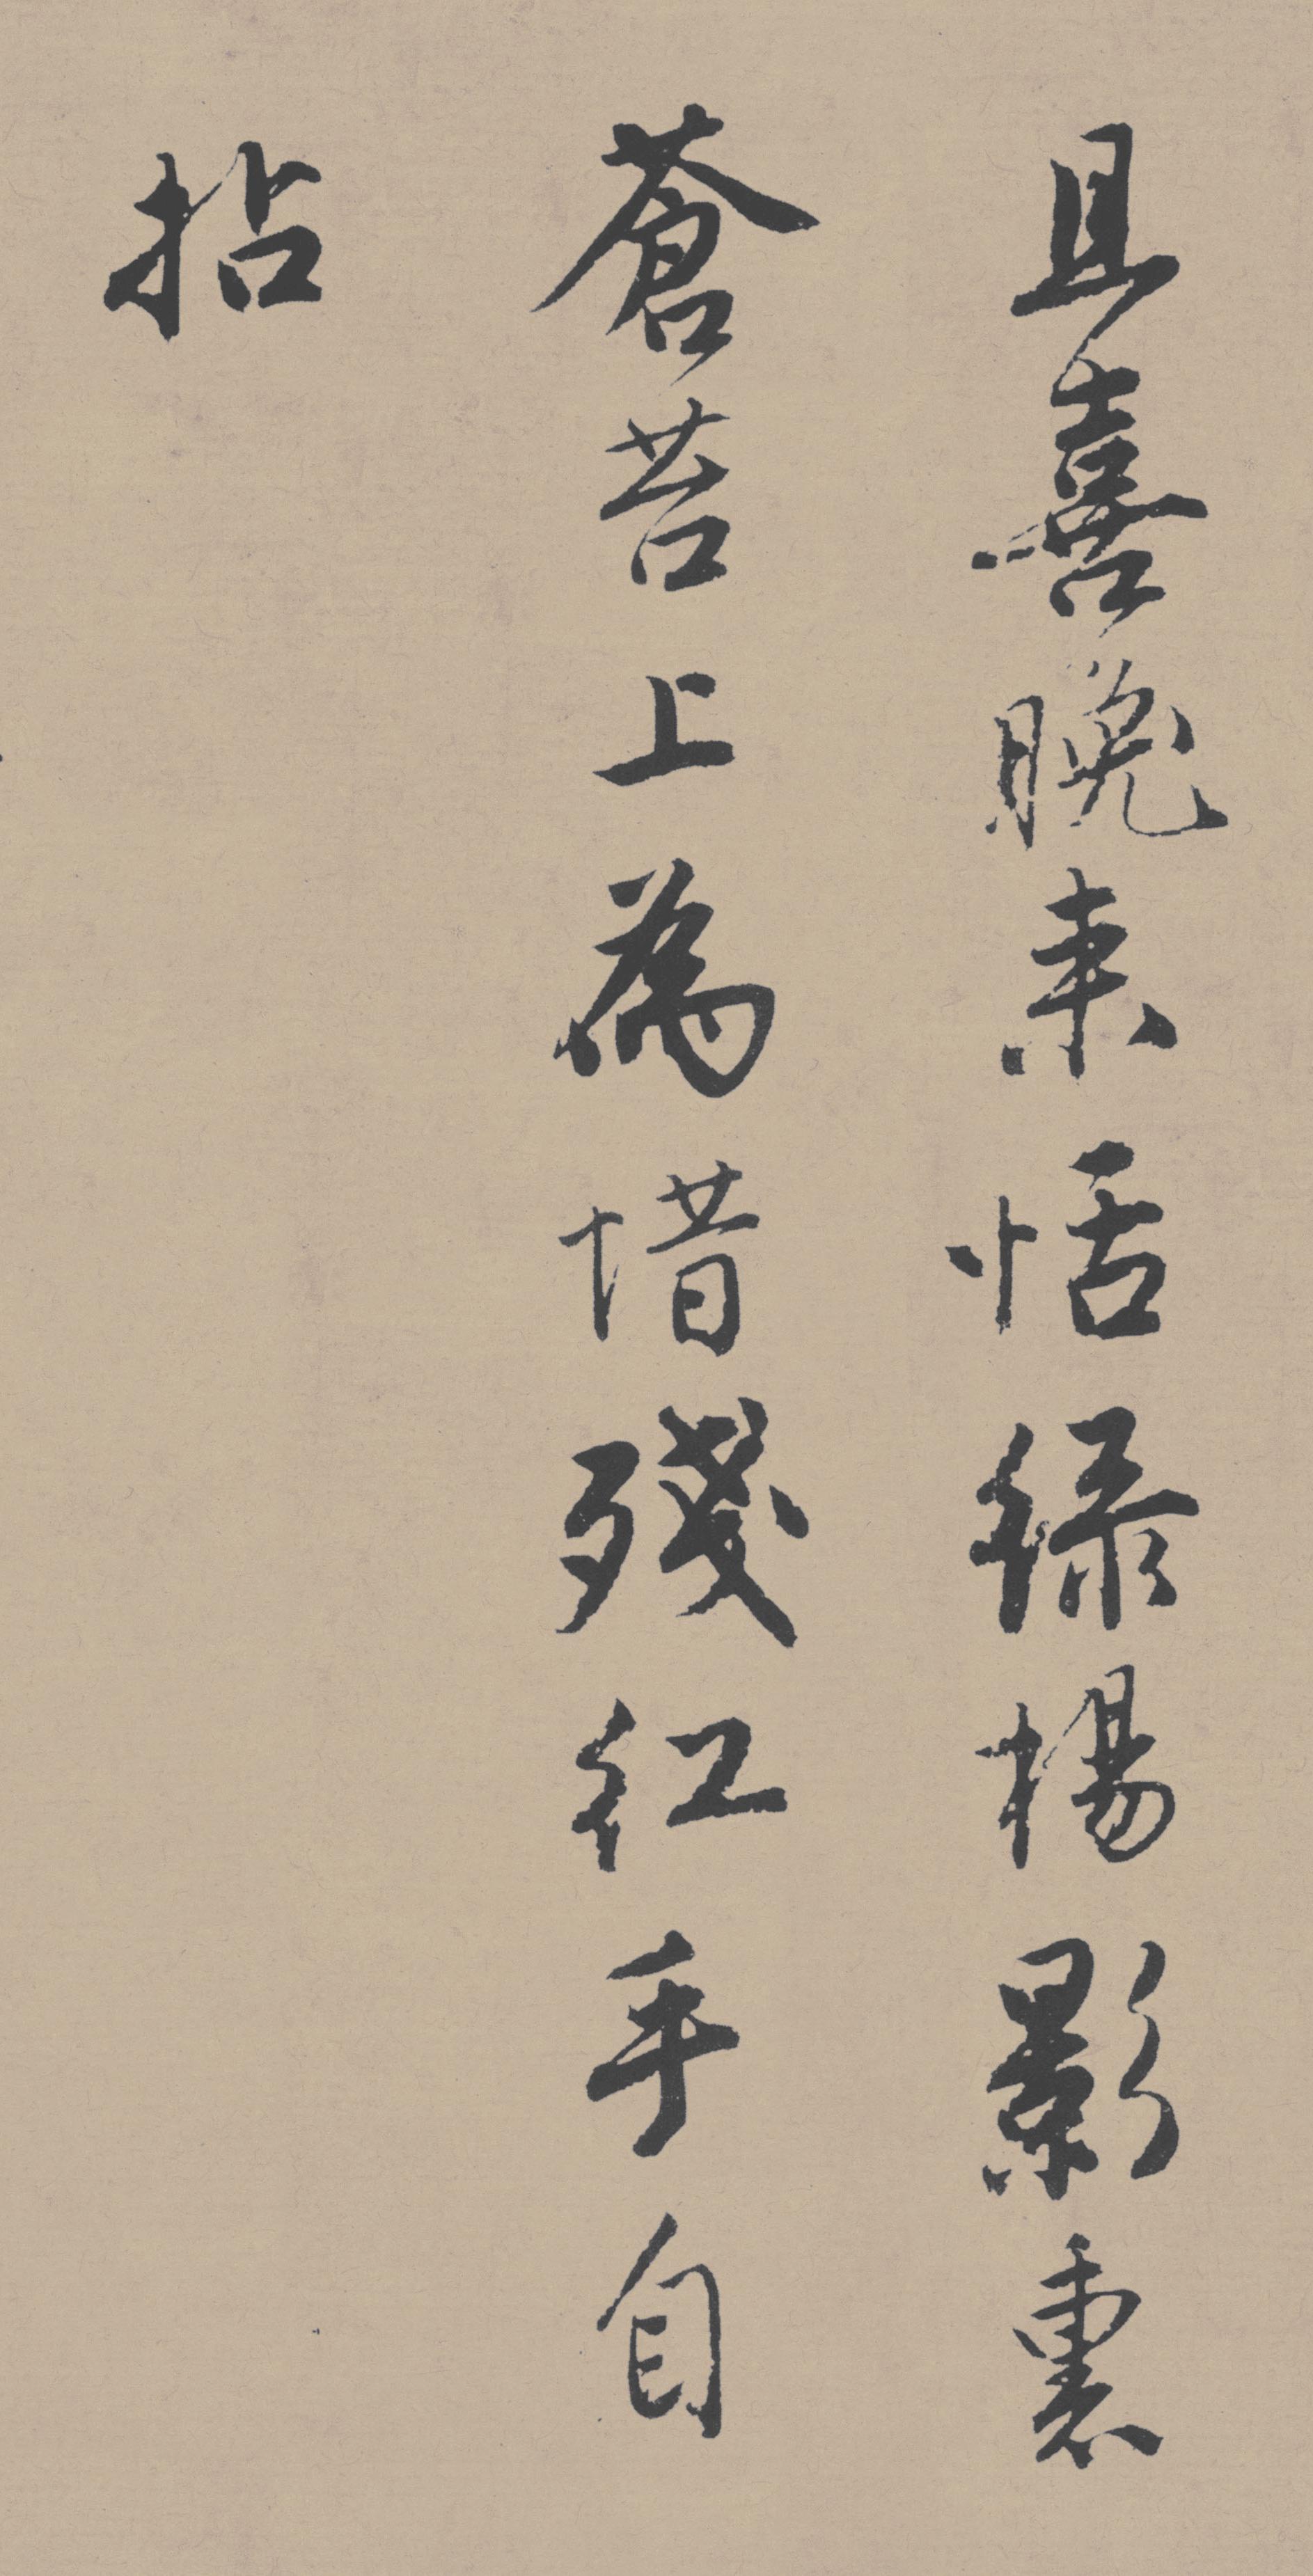 且喜晚来恬緑楊影裏
蒼苔上為惜殘紅手自
拈